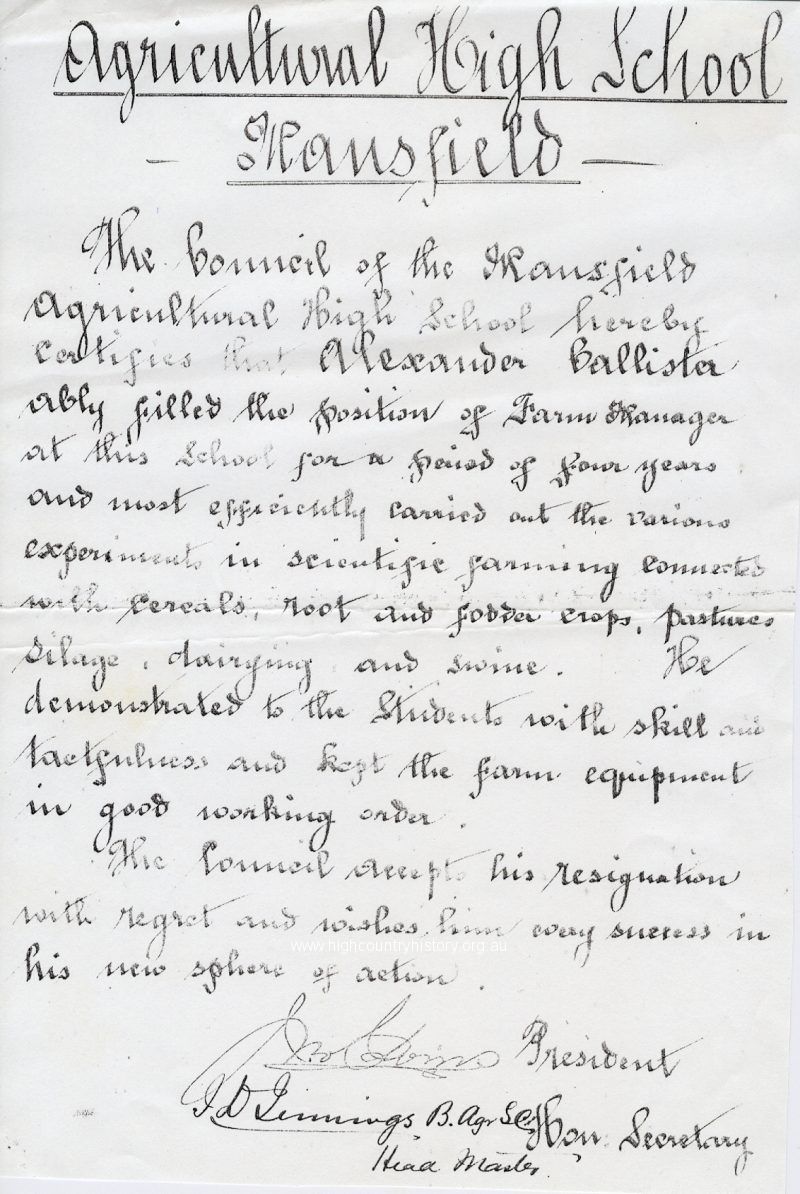 Agricultural High School
- Mansfield -
The Council of the Mansfield
Agricultural High School hereby
certifies that Alexander Callister
ably filled the position of Farm Manager
at this School for a period of four years
and most efficiently carried out the various
experiments in scientific farming connected
with Cereals, root and fodder crops, pastures
silage, dairying and swine. He
demonstrated to the Students with skill and
tactfulness and kept the farm equipment
in good working order.
The Council accepts his resignation
with regret and wishes him every success in
www.highcountryhistory.org.au
his new sphere of action.
President
J D Jennings B. Agr Sc. Hon. Secretary
Head Master.